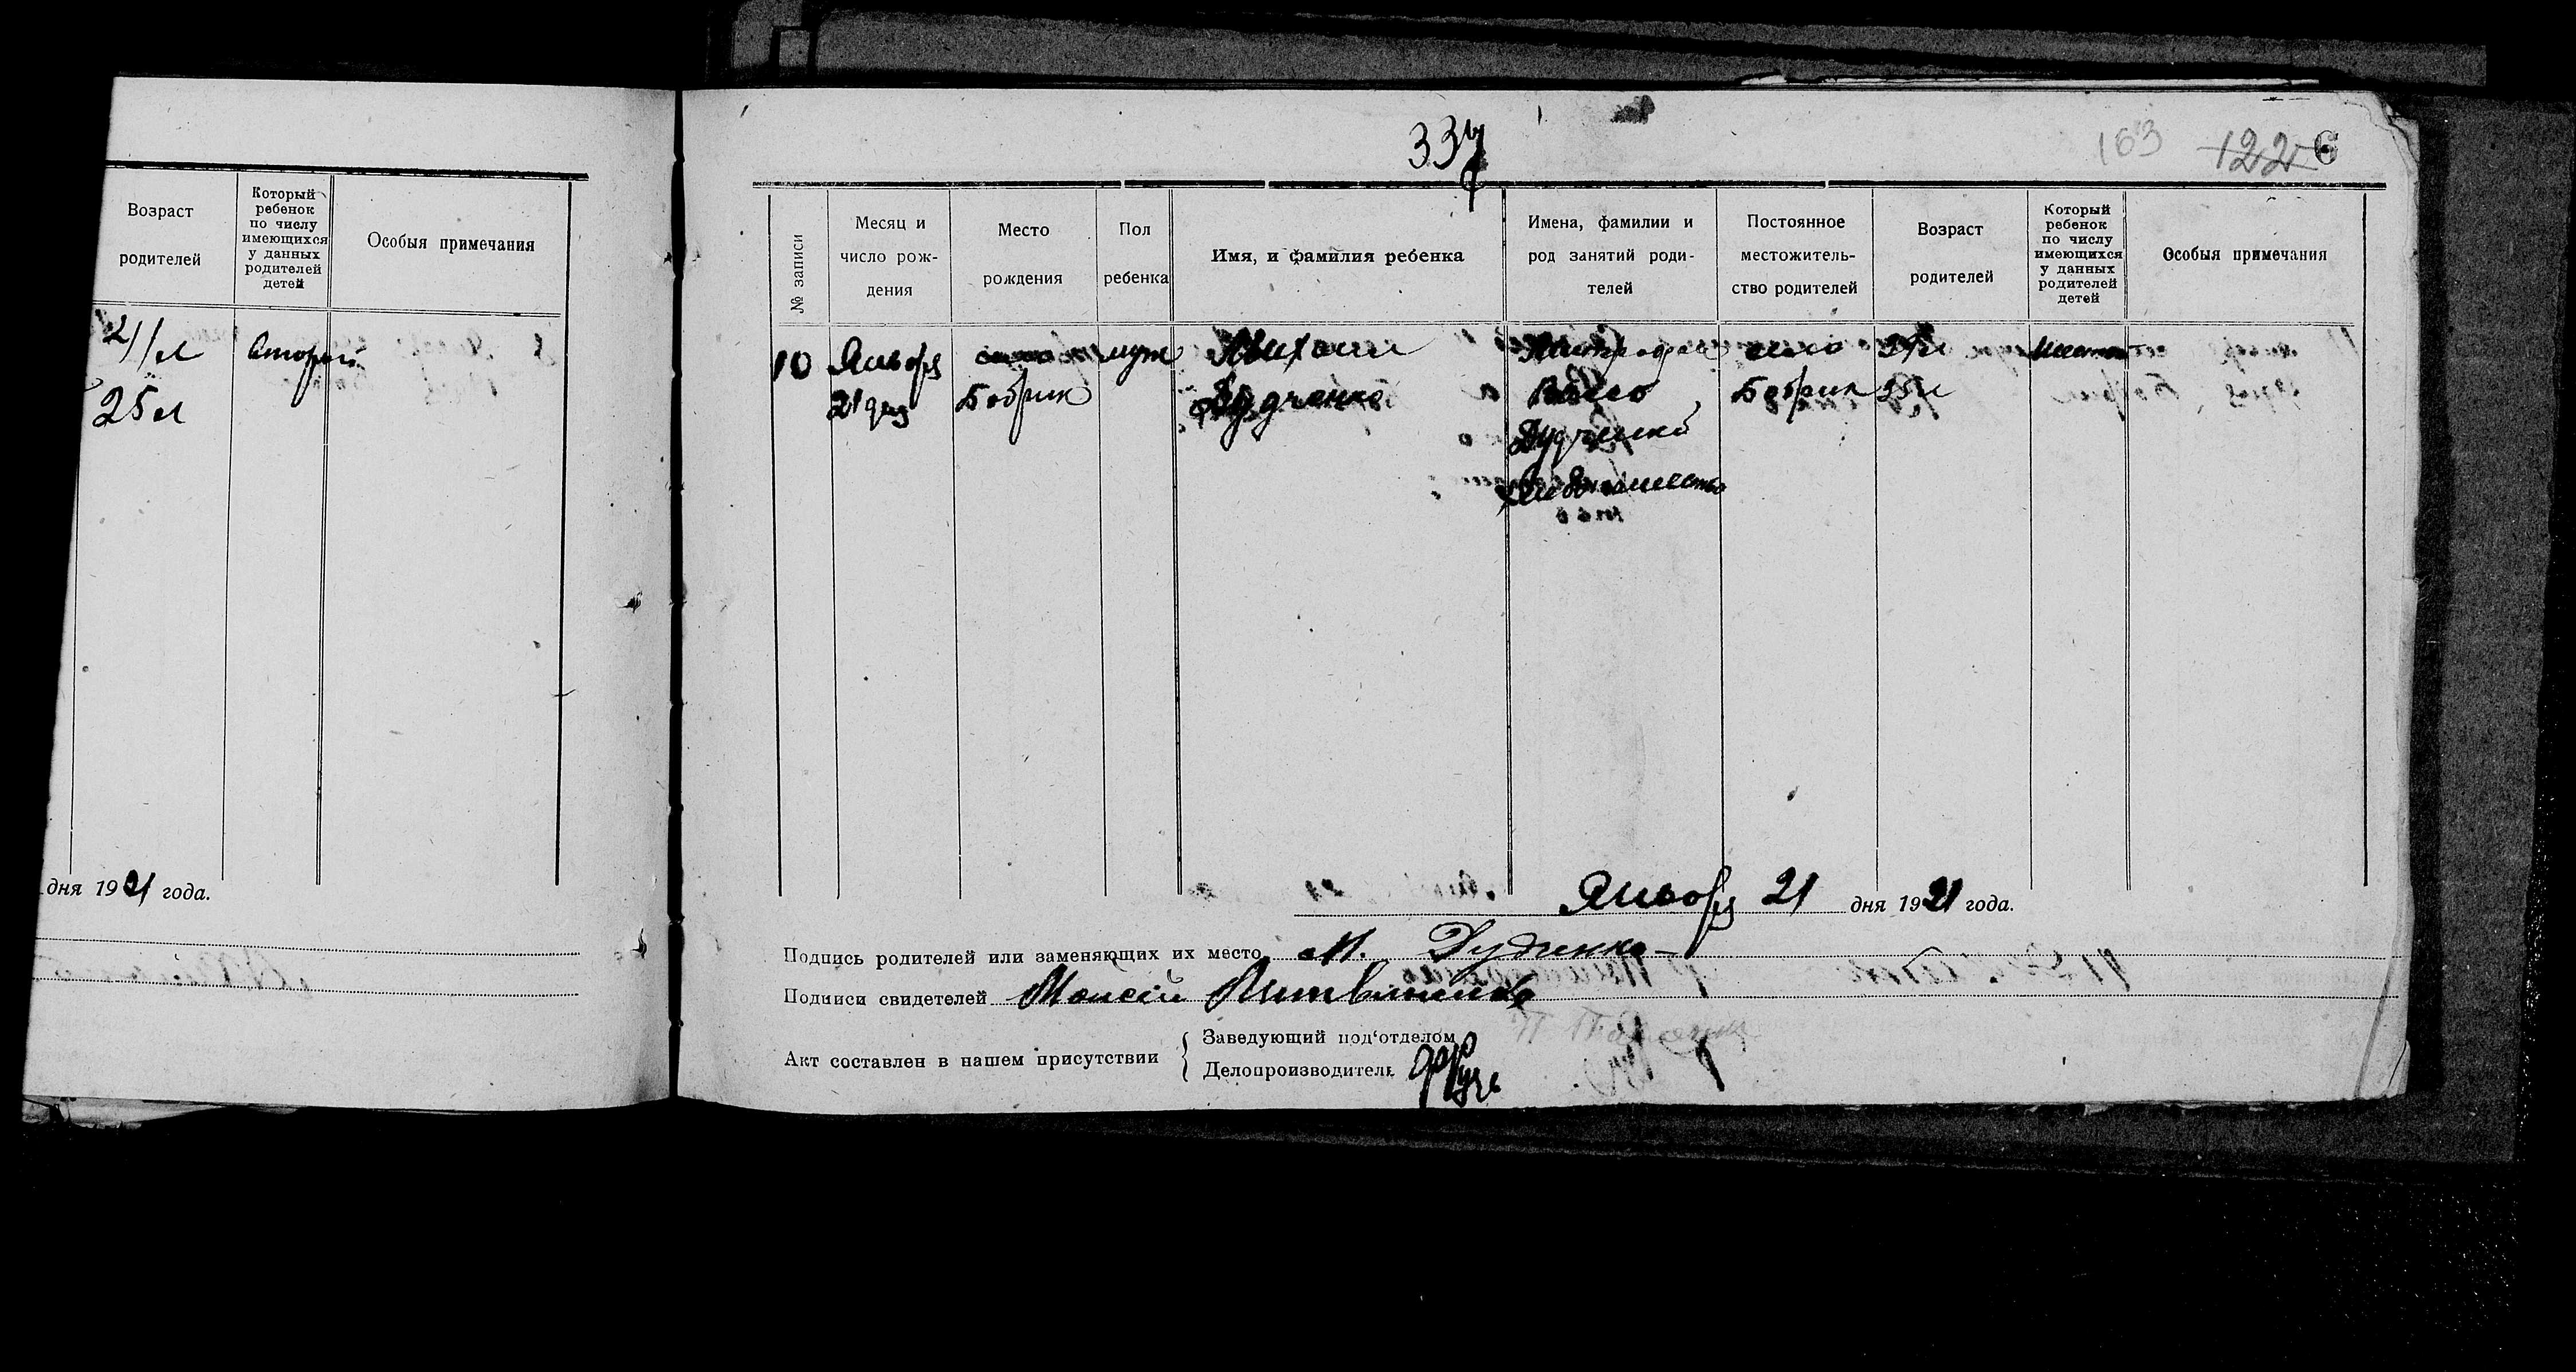 Возраст
родителей
Который
ребенок
по числу
имеющихся
у данных
родителей
детей
Особыя примечания
21 л
второй
25 л
дня 1921 года.
337
163
122
6
№ записи
Месяц и
число рож-
дения
Место
рождения
Пол
ребенка
Имя, и фамилия ребенка
Имена, фамилии и
род занятий роди-
телей
Постоянное
местожитель-
ство родителей
Возраст
родителей
Который
ребенок
по числу
имеющихся
у данных
родителей
детей
Особыя примечания
10
Январ
21 дня
село
Бобрик
муж
Михаил
Дудченко
Дудченко
село
Бобрик
35 л
Январ 21 дня 1921 года.
Подпись родителей или заменяющих их место М. Дудченко
Подписи свидетелей Моисей Литвиненко
Акт составлен в нашем присутствии
Заведующий под'отделом
Делопроизводитель